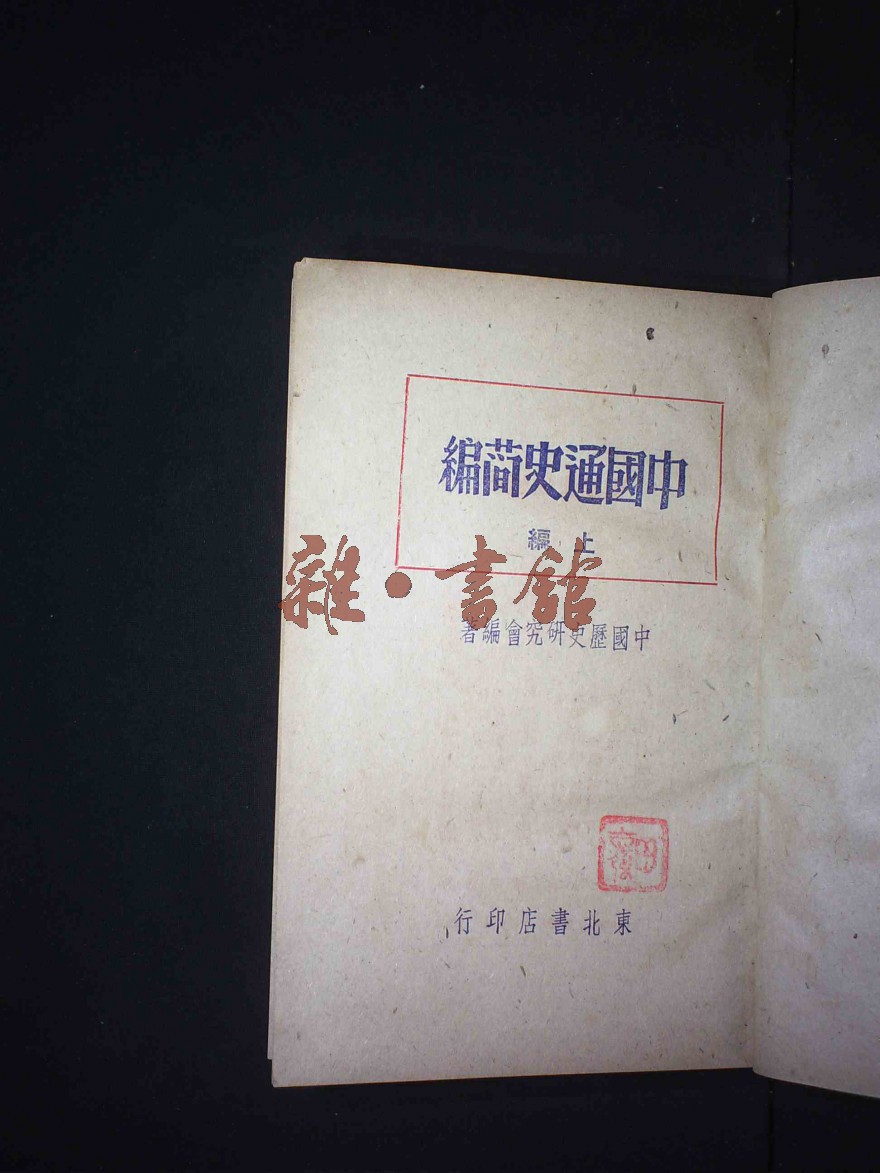 中國通史簡編
上編
雜·書館
中國歷史研究會編著
東北書店印行